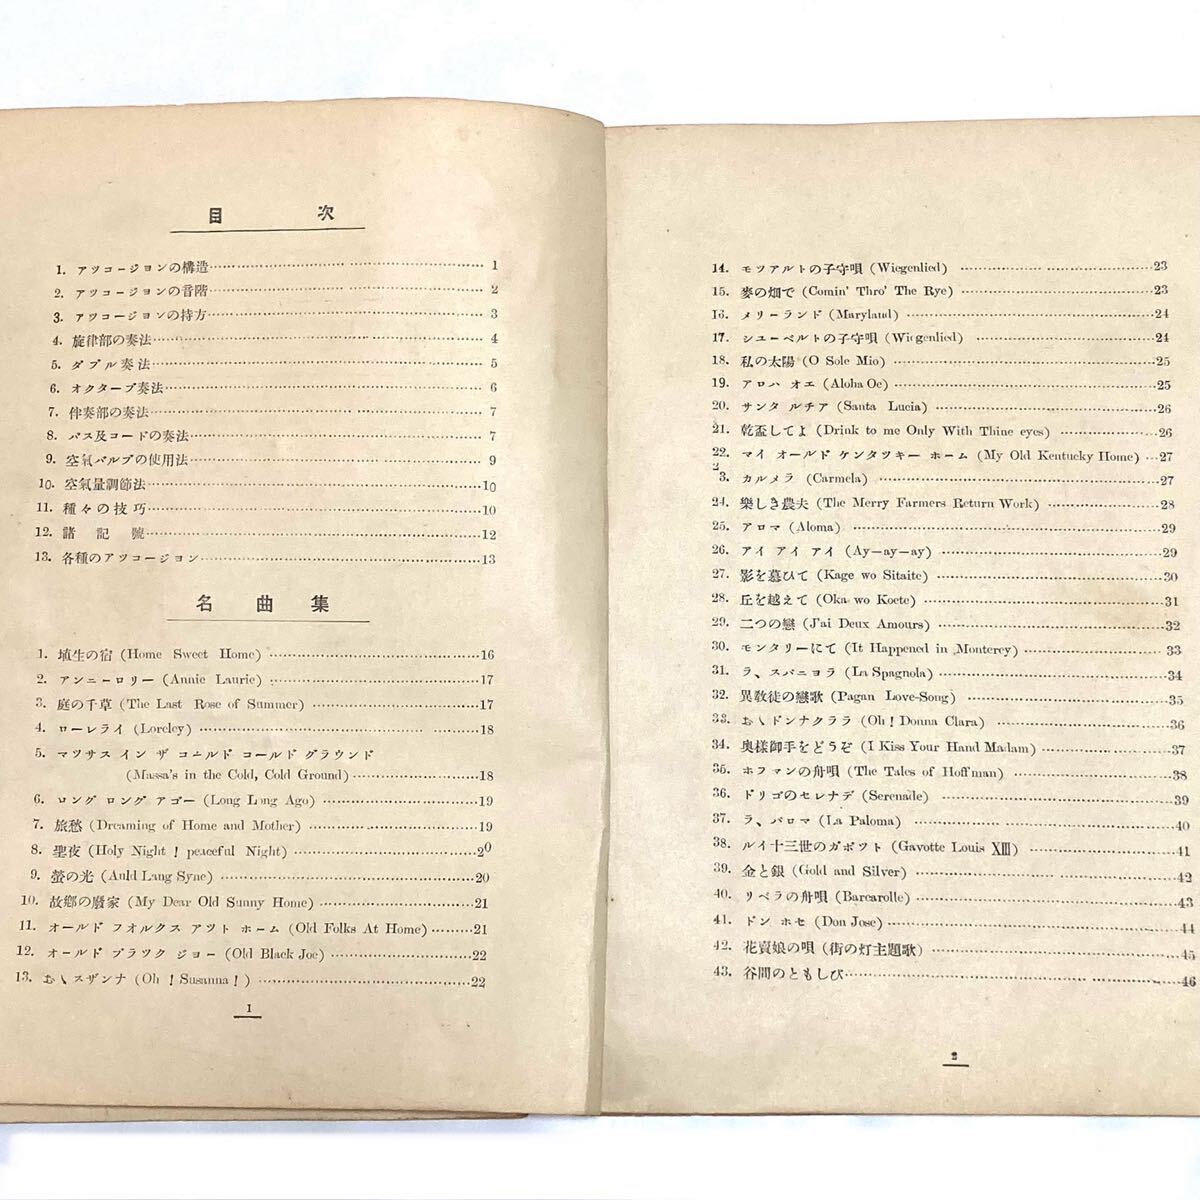 目次
1. アツコージヨンの構造 1
2. アツコージヨンの音階 2
3. アツコージヨンの持方 3
4. 旋律部の奏法 4
5. ダブル奏法 5
6. オクターブ奏法 6
7. 伴奏部の奏法 7
8. バス及コードの奏法 7
9. 空氣バルブの使用法 9
10. 空氣量調節法 10
11. 種々の技巧 10
12. 諸記號 12
13. 各種のアツコージヨン 13
名曲集
1. 埴生の宿 (Home Sweet Home) 16
2. アンニーロリー (Annie Laurie) 17
3. 庭の千草 (The Last Rose of Summer) 17
4. ローレライ (Loreley) 18
5. マツサス イン ザ コールド コールド グラウンド
(Massa's in the Cold, Cold Ground) 18
6. ロング ロング アゴー (Long Long Ago) 19
7. 旅愁 (Dreaming of Home and Mother) 19
8. 聖夜 (Holy Night! peaceful Night) 20
9. 螢の光 (Auld Lang Syne) 20
10. 故鄕の廢家 (My Dear Old Sunny Home) 21
11. オールド フオルクス アツト ホーム (Old Folks At Home) 21
12. オールド ブラツク ジヨー (Old Black Joe) 22
13. おゝスザンナ (Oh! Susanna!) 22
1
14. モツアルトの子守唄 (Wiegenlied) 23
15. 麥の畑で (Comin' Thro' The Rye) 23
16. メリーランド (Maryland) 24
17. シユーベルトの子守唄 (Wiegenlied) 24
18. 私の太陽 (O Sole Mio) 25
19. アロハ オエ (Aloha Oe) 25
20. サンタ ルチア (Santa Lucia) 26
21. 乾盃してよ (Drink to me Only With Thine eyes) 26
22. マイ オールド ケンタツキー ホーム (My Old Kentucky Home) 27
23. カルメラ (Carmela) 27
24. 樂しき農夫 (The Merry Farmers Return Work) 28
25. アロマ (Aloma) 29
26. アイ アイ アイ (Ay—ay—ay) 29
27. 影を慕ひて (Kage wo Sitaite) 30
28. 丘を越えて (Oka wo Koete) 31
29. 二つの戀 (J'ai Deux Amours) 32
30. モンタリーにて (It Happened in Monterey) 33
31. ラ、スパニヨラ (La Spagnola) 34
32. 異敎徒の戀歌 (Pagan Love-Song) 35
33. おゝドンナクララ (Oh! Donna Clara) 36
34. 奥樣御手をどうぞ (I Kiss Your Hand Madam) 37
35. ホフマンの舟唄 (The Tales of Hoffman) 38
36. ドリゴのセレナデ (Serenade) 39
37. ラ、パロマ (La Paloma) 40
38. ルイ十三世のガボツト (Gavotte Louis XIII) 41
39. 金と銀 (Gold and Silver) 42
40. リベラの舟唄 (Barcarolle) 43
41. ドン ホセ (Don Jose) 44
42. 花賣娘の唄 (街の灯主題歌) 45
43. 谷間のともしび 46
2